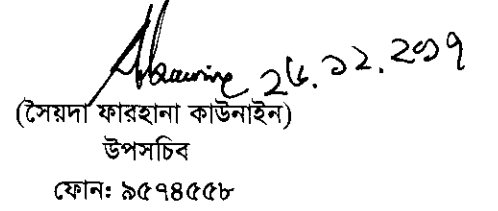 ২৬.১২.২০১৭
(সৈয়দা ফারহানা কাউনাইন)
উপসচিব
ফোন: ৯৫৭৪৫৫৮